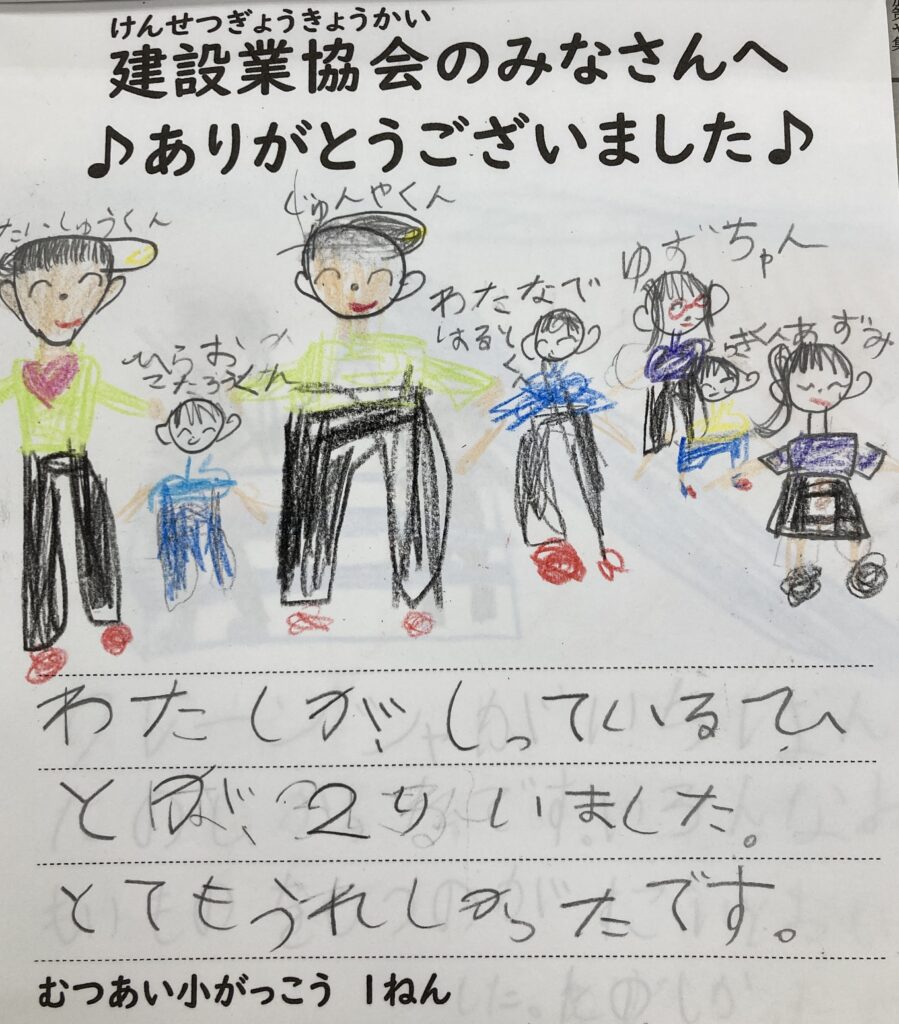 けんせつぎょうきょうかい
建設業協会のみなさんへ
♪ありがとうございました♪
たいしゅうくん
じゅんやくん
わたなで
はるとくん
ゆずちゃん
ひらお
こたろうくん
あずみ
わたしが、しっているひ
とが、2り いました。
とてもうれしかったです。
むつあい小がっこう 1ねん